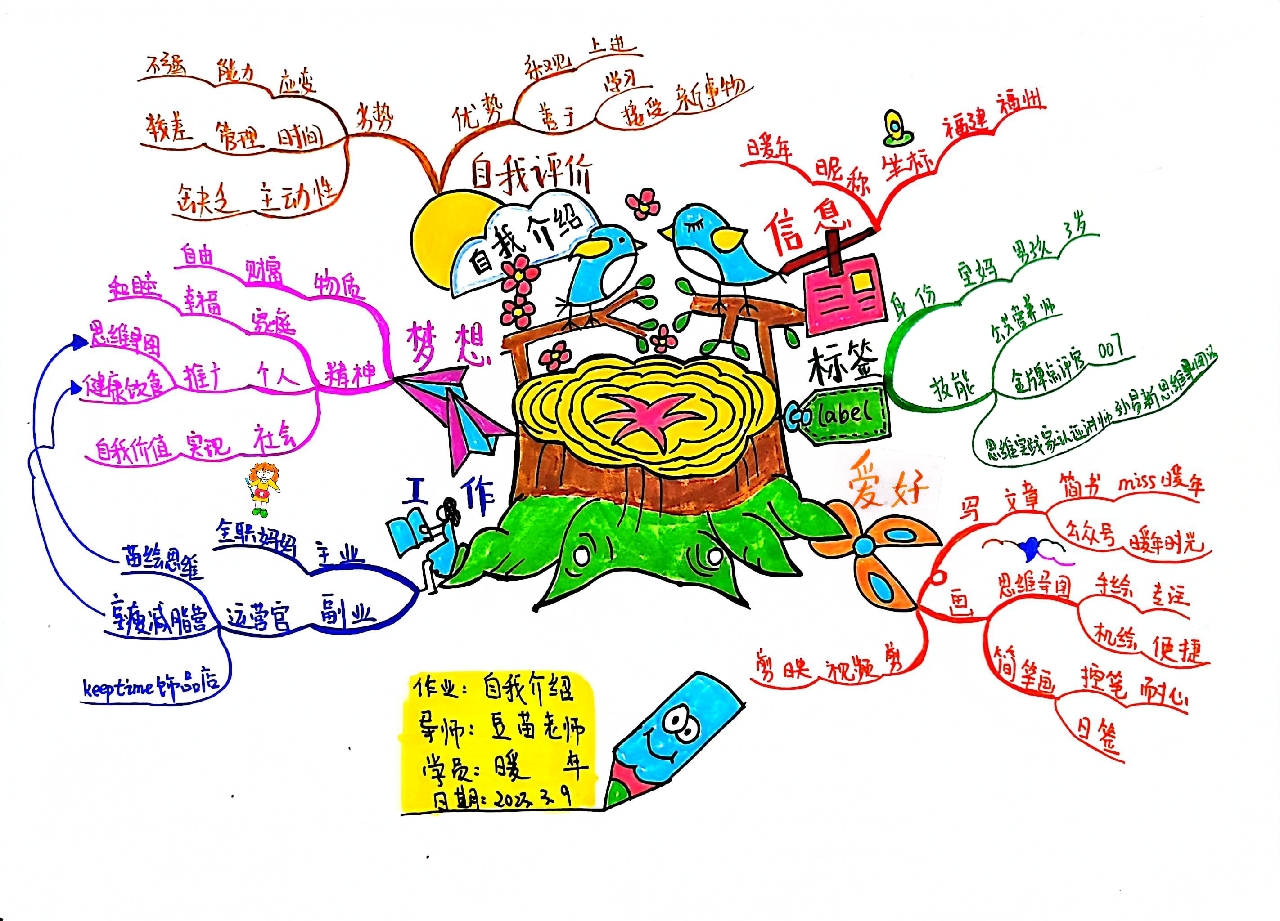 自我介绍
信息
昵称
暖年
坐标
福建
福州
标签
label
身份
宝妈
男孩
3岁
技能
公共营养师
金牌点评官
007
思维实践家认证讲师
孙易新思维导图法
爱好
写
文章
简书
miss暖年
公众号
暖年时光
画
思维导图
手绘
专注
机绘
便捷
简笔画
控笔
耐心
日签
剪
视频
剪映
工作
主业
全职妈妈
副业
运营官
苗绘思维
享瘦减脂营
keeptime饰品店
梦想
物质
财富
自由
精神
家庭
幸福
和睦
个人
推广
思维导图
健康饮食
社会
实现
自我价值
自我评价
优势
乐观
上进
善于
学习
接受
新事物
劣势
应变
能力
不强
时间
管理
较差
缺乏
主动性
作业：自我介绍
导师：豆苗老师
学员：暖 年
日期：2023.3.9